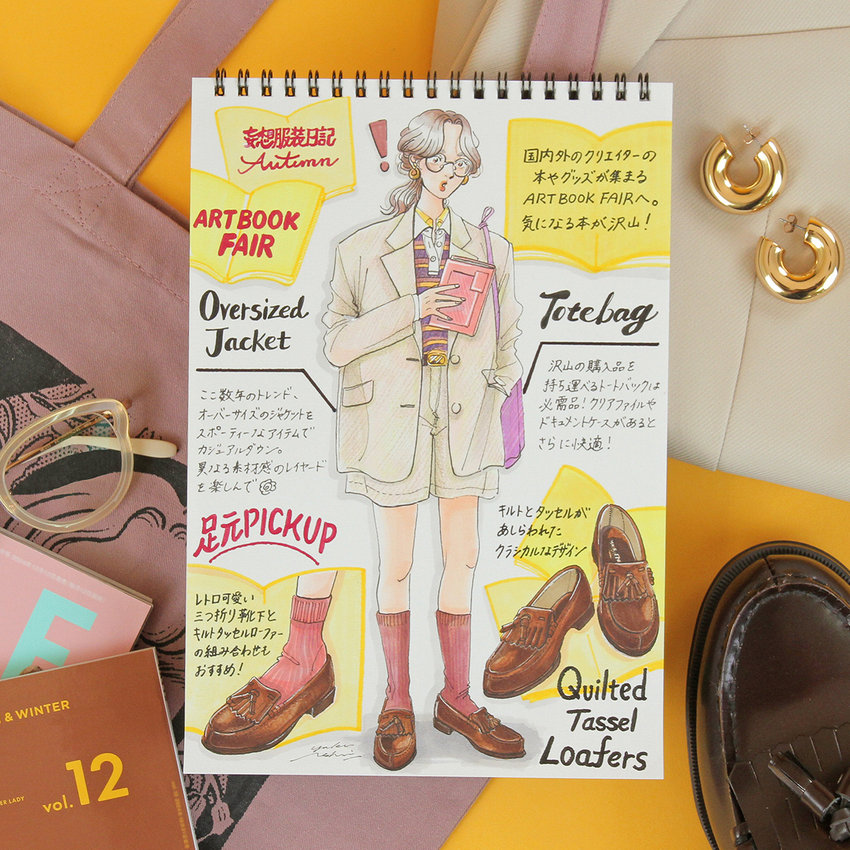 妄想服装日記
Autumn
ART BOOK
FAIR
国内外のクリエイターの
本やグッズが集まる
ART BOOK FAIRへ。
気になる本が沢山!
Oversized
Jacket
Totebag
ここ数年のトレンド、
オーバーサイズのジャケットを
スポーティーなアイテムで
カジュアルダウン。
異なる素材感のレイヤード
を楽しんで
沢山の購入品を
持ち運べるトートバックは
必需品!クリアファイルや
ドキュメントケースがあると
さらに快適!
足元PICKUP
キルトとタッセルが
あしらわれた
クラシカルなデザイン
レトロ可愛い
三つ折り靴下と
キルトタッセルローファー
の組み合わせも
おすすめ!
Quilted
Tassel
Loafers
& WINTER
vol.12
ER LADY